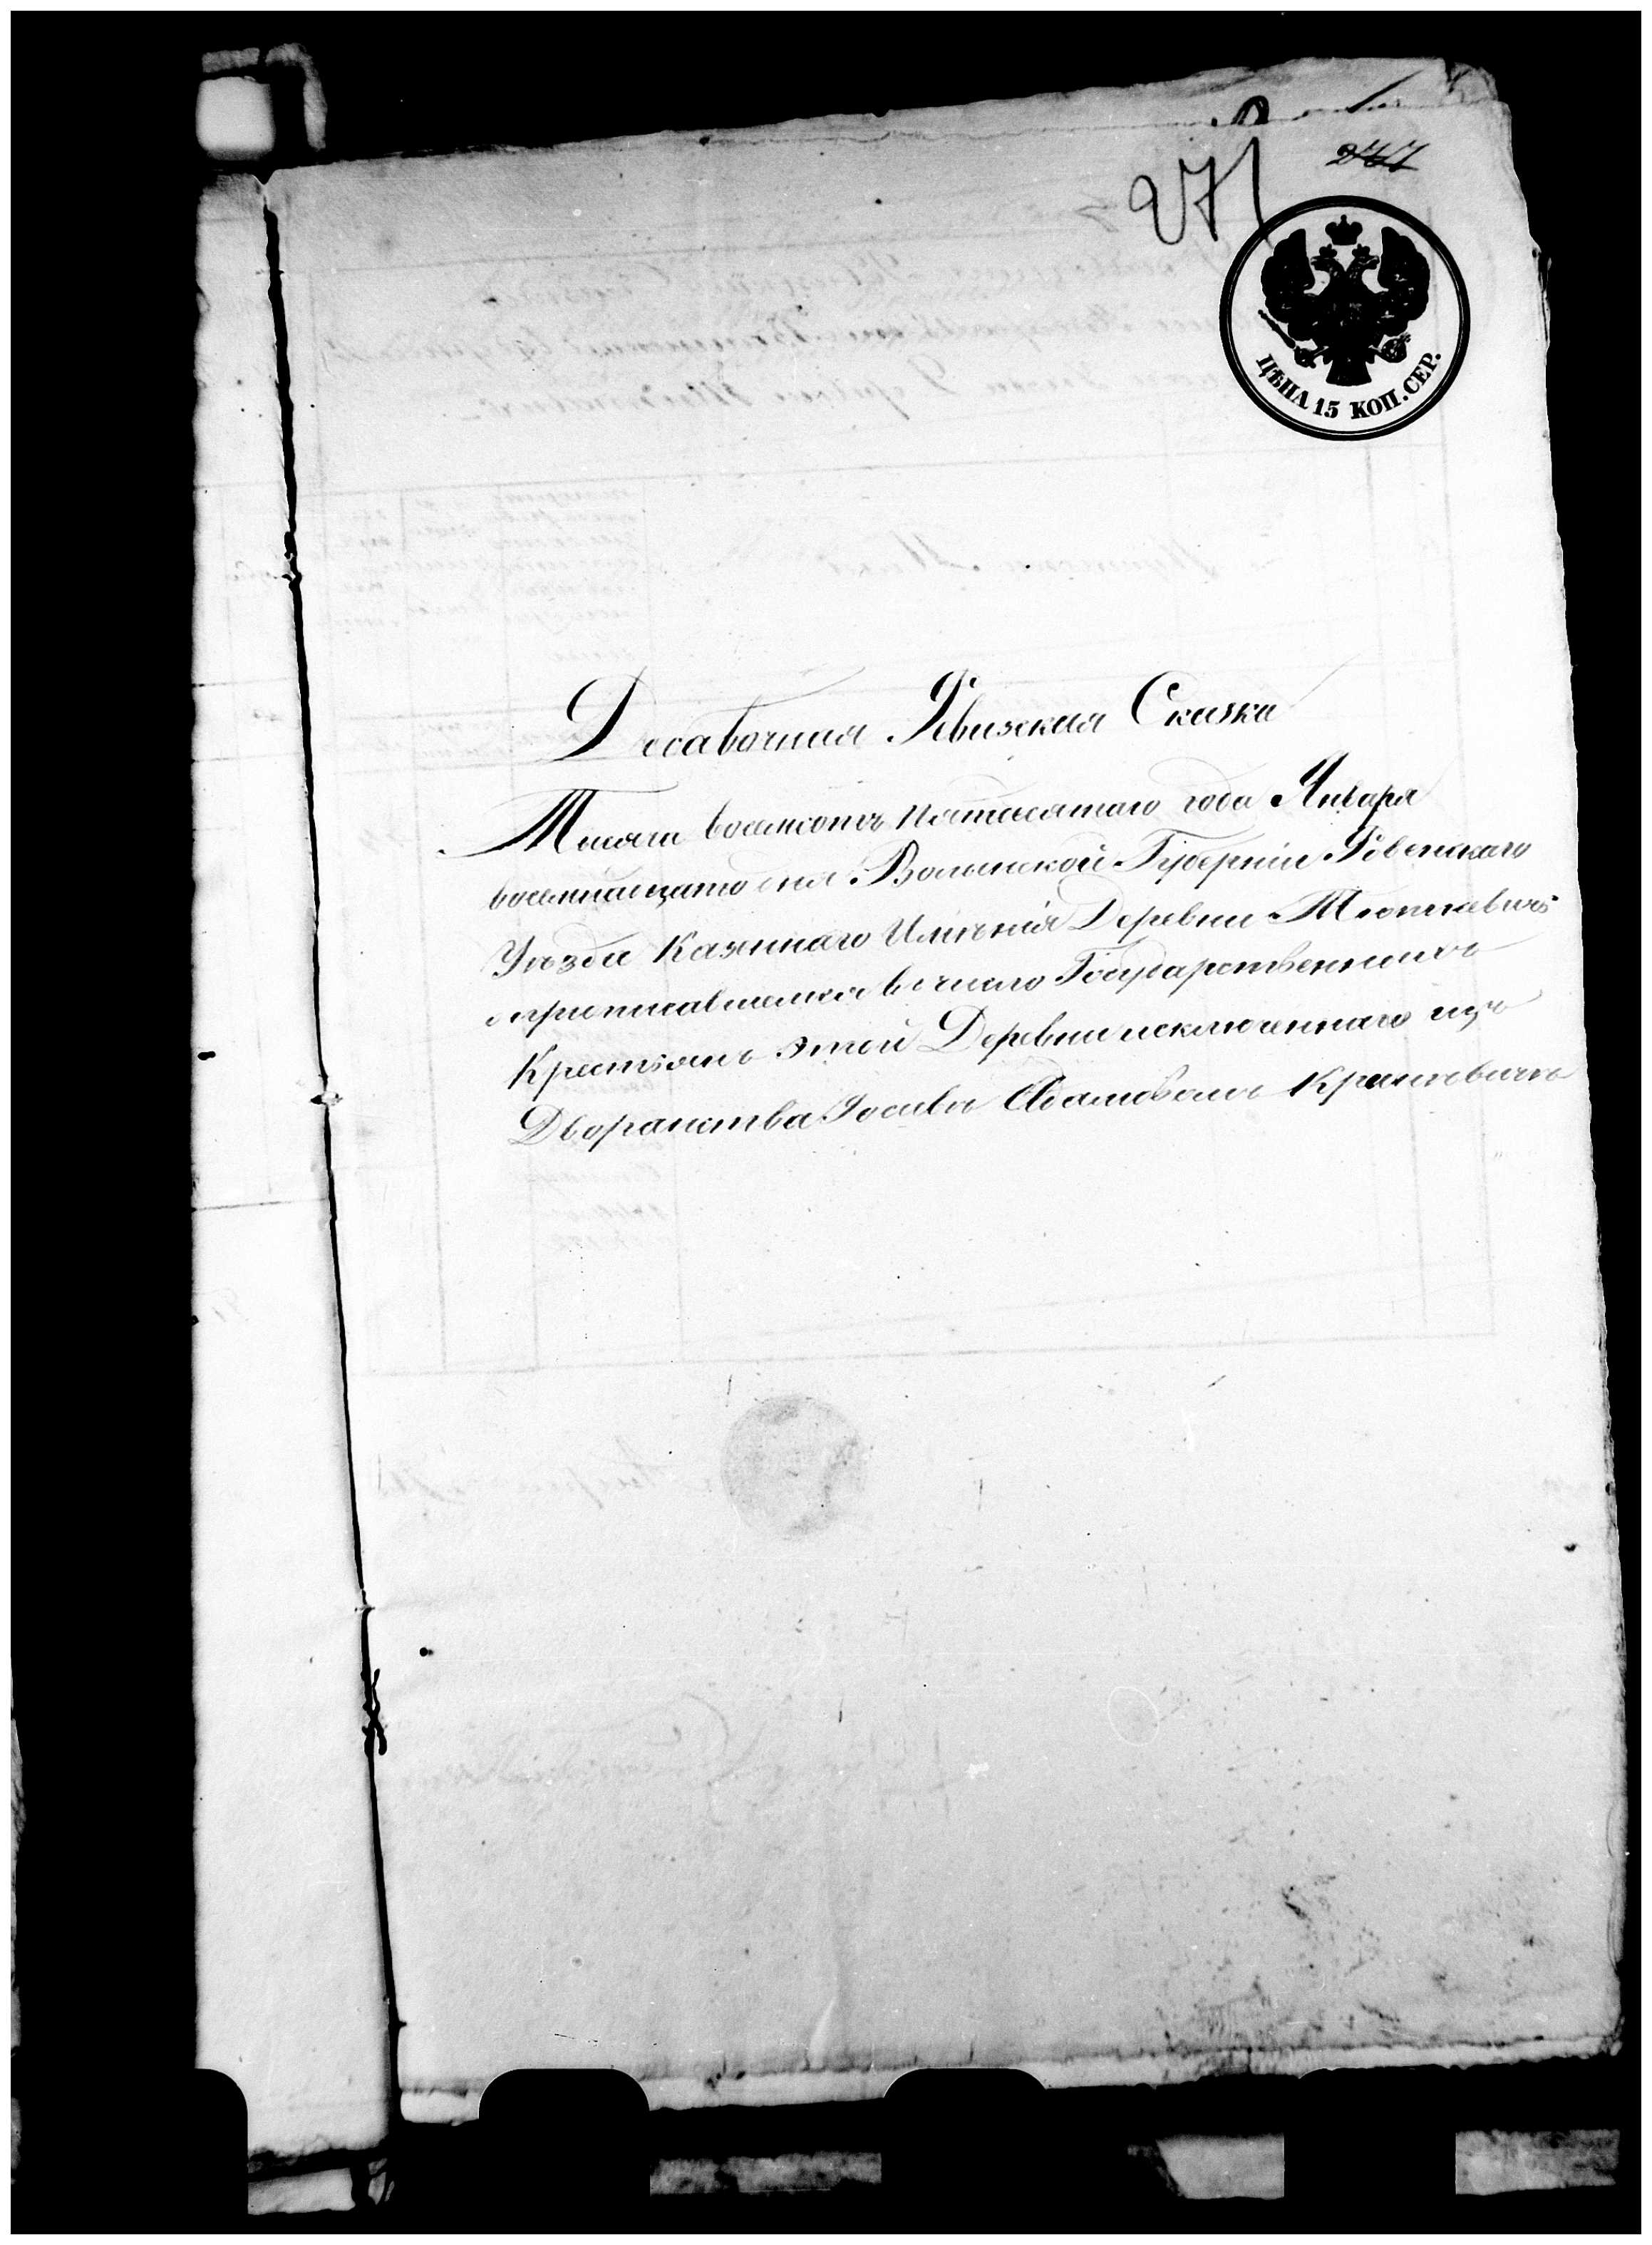 271
277
ЦѢНА 15 КОП. СЕР.
Добавочная Ревизская Сказка
Тысяча восемсотъ пятдесятаго года Января
восемнацато дня Волынской Губерніи Ровенскаго
Уѣзда Казеннаго Имѣнія Деревни
приписавшемся въ число Государственныхъ
Крестьянъ этой Деревни исключеннаго изъ
Дворянства Іосифъ Адамовомъ